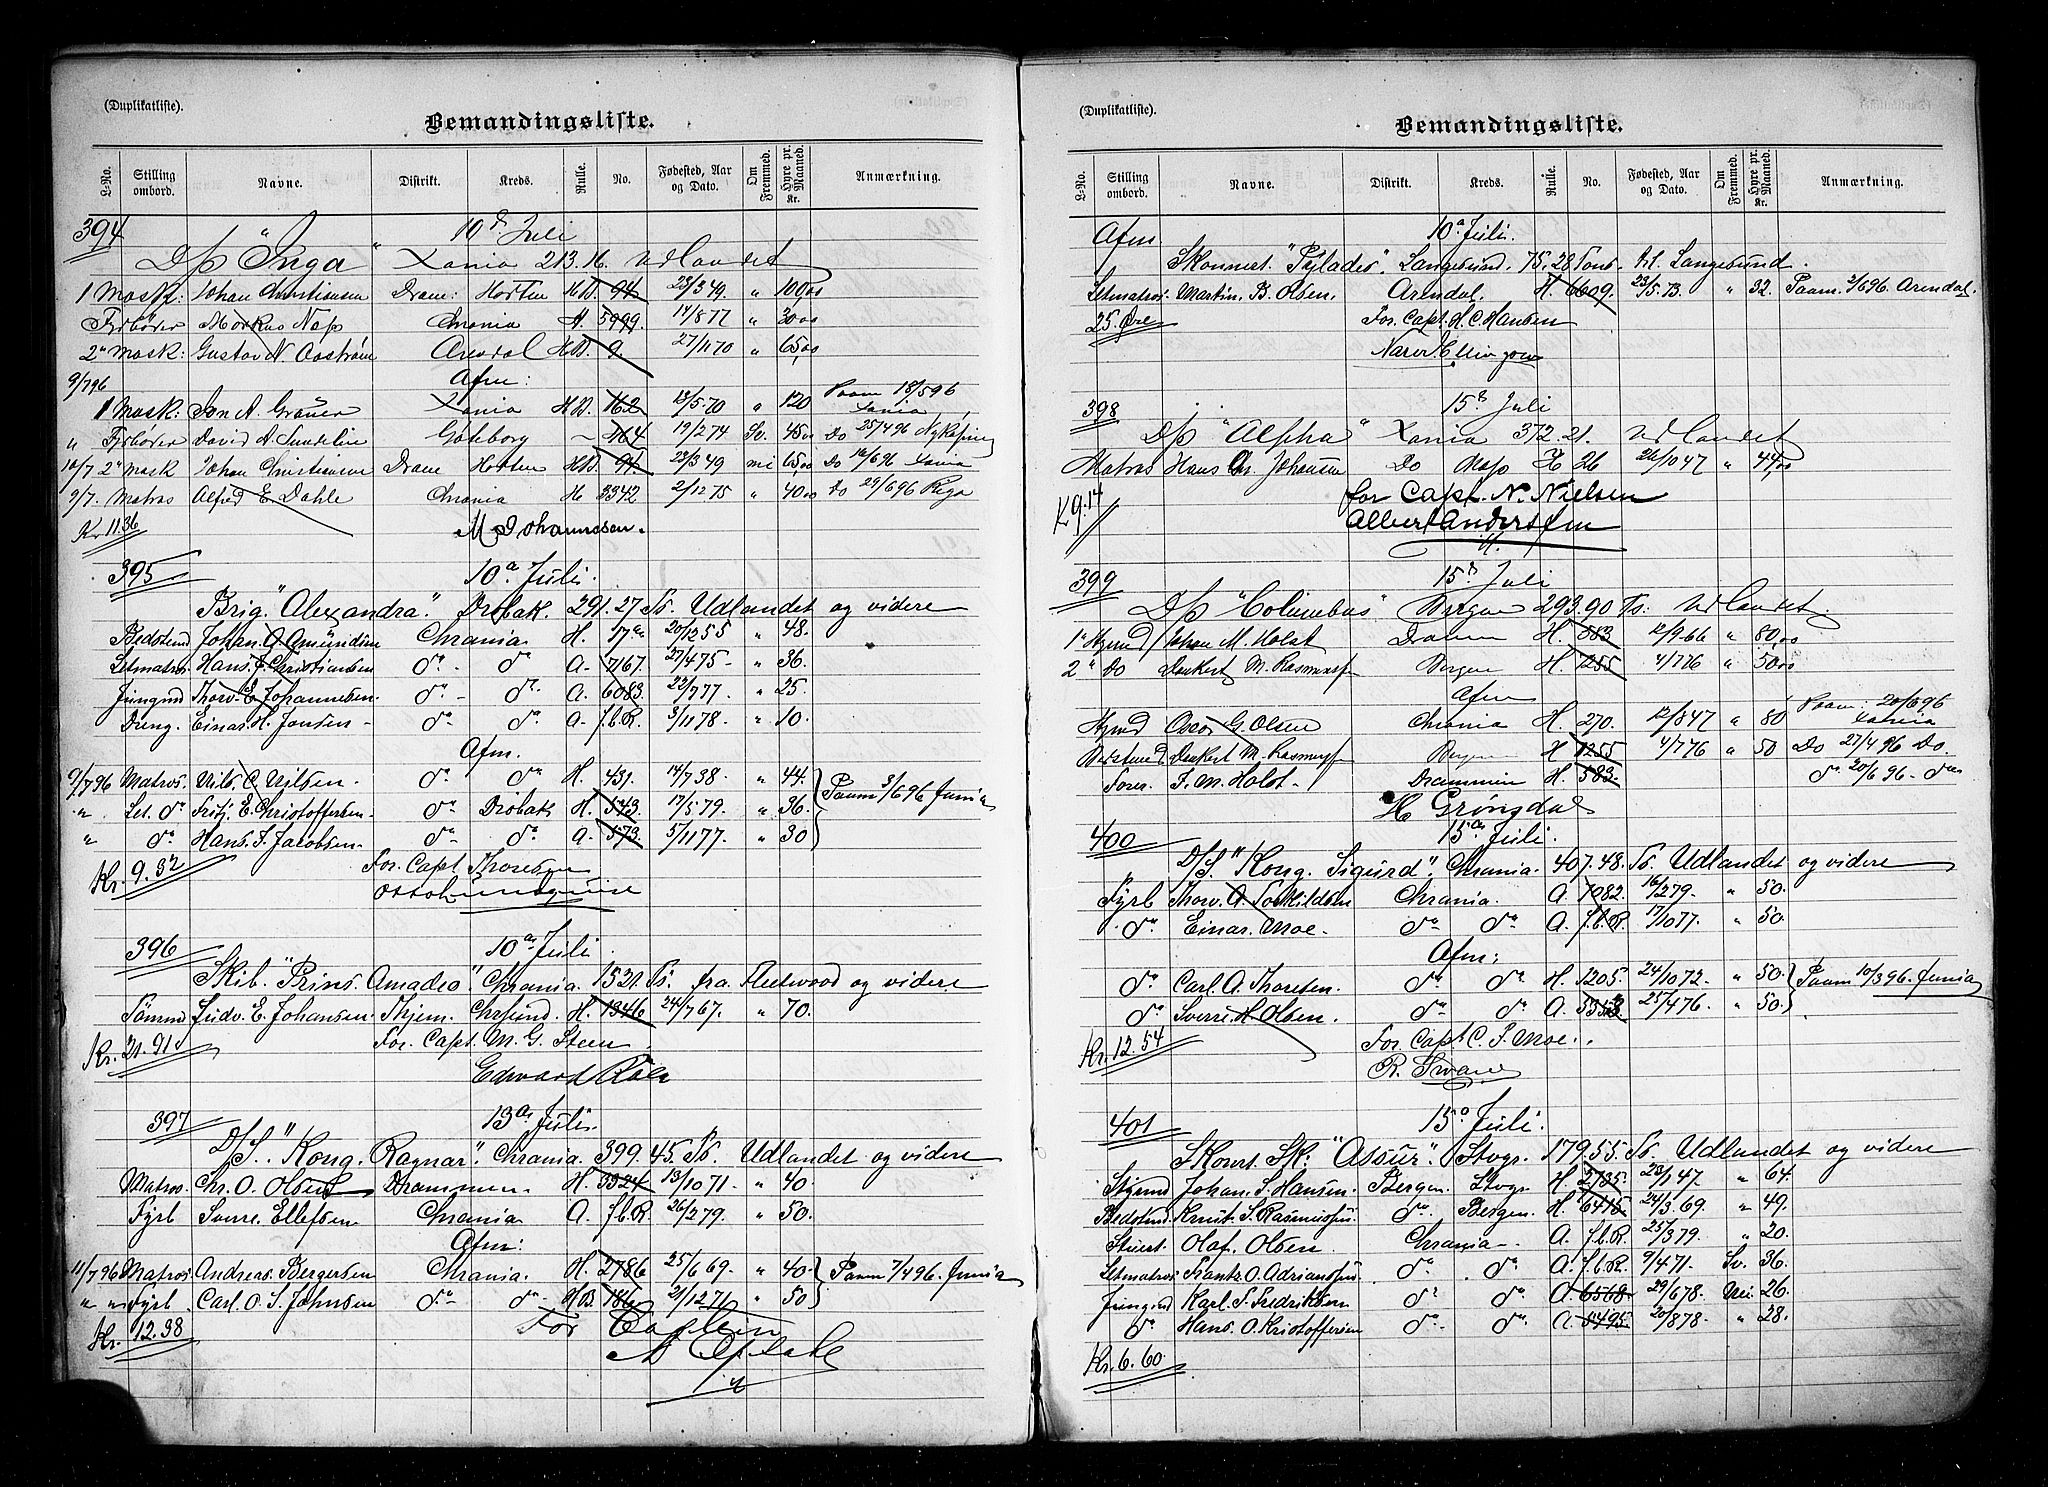 (Duplikatliste).
Bemandingsliste.
L-No. Stilling ombord. Navne. Distrikt. Kreds. Rulle. No. Fødested, Aar og Dato. Om Fremmed. Hyre pr. Maaned. Kr. Anmærkning.
394 10d Juli
D/p "Inga" Xania 213.16. Udlandet
1 Mask: Johan Christiansen Dram: Horten HB. 94. 23/3 49. " 100 00
Fyrbøder Markus Naps Chrania H. 5999. 17/8 77 " 30 00
2" Mask: Gustav N Aastrøm Arendal HB. 9. 27/1 70 " 65,00
9/7 96 Afm:
1 Mask: Jon A. Grauer Xania HB. 162 13/5 70 " 120 Paam 18/5 96 Xania
" Fyrbøder David A. Sundelin Göteborg ~ 464 19/2 74 Sv. 45 00 Do 25/4 96 Nykøping
10/7 2" Mask Johan Christiansen Dram Horten HB. 94. 23/3 49 nei 65 00 Do 16/6 96 Xania
9/7. Matros Alfred E. Dahle Chrania H 3342 2/12 75 " 40 00 Do 29/6 96 Riga
Kr 11.36 M Johannesen.
395 10d Juli.
Brig. "Alexandra". Drøbak. 291.27 Ts. Udlandet og videre
Bedstmd Johan. O. Amundsen Chrania. H. 17a 20/12 55 " 48.
Letmatros. Hans. J. Christiansen do - do A. 7167. 27/4 75 - " 36.
Jungmd Thorv. E. Johannesen. do - do. A. 6083. 22/7 77. " 25.
Dreng. Einar. H. Jensen - do do. A. f.b.R. 3/11 78. " 10.
Afm.
9/7 96 Matros. Nils. C. Nilsen. do do H. 431. 14/7 38. " 44. Paam 3/6 96 Junia
" . Let. do Fritj. E. Christoffersen. do Drøbak. H. 543. 17/5 79. " 36.
" do Hans. F. Jacobsen. do - do. A. 573. 5/11 77. " 30
Kr. 9.32 For. Capt Thoresen
Otto Lindquist
396 10d Juli
Skib. "Prins. Amadeo". Chrania. 1521. Ts. fra. Fleetwood og videre
Tømmd Ludv. E. Johansen. Thjem. Chrsund. H. 1346 24/7 67. " 70.
Kr. 21.91 For. Capt. M. G. Steen.
Edward
397 13d Juli.
D/S. "Kong. Ragnar". Chrania. 399.45. Ts. Udlandet og videre
Matros. Chr. O. Olsen Drammen. H. 3324 13/10 71. " 40.
Fyrb Sverre. Ellefsen Chrania A. f.b.R. 26/2 79. " 50.
Afm:
11/7 96 Matros Andreas. Bergersen Chrania. H. 2786 25/6 69. " 40. Paam 7/4 96. Junia
" " Fyrb. Carl. O. S. Johnsen do do. HB. 186 21/12 71 " 50
Kr. 12.38 For Captein

(Duplikatliste).
Bemandingsliste.
L-No. Stilling ombord. Navne. Distrikt. Kreds. Rulle. No. Fødested, Aar og Dato. Om Fremmed. Hyre pr. Maaned. Kr. Anmærkning.
Afm 10d Juli.
Skonnert. "Pylades". Langesund. 75.28 Tons. til. Langesund.
Letmatros. Martin. B. Olsen. Arendal. H. 6609. " 32. Paam. 3/6 96. Arendal.
25. Øre For. Capt. H. C. Hansen
Ellingsen
398 15d Juli
D/p "Alpha" Xania 372.21. Udlandet
Matros Hans Chr. Johansen Do H 26 26/10 47 " 44,00
K 9.14 for Capt. N. Nielsen
Albert Andersen
399 15d Juli
D/p "Columbus" Bergen 293.90 Ts: Udlandet
1" Hymd Johan M. Holst Dramm H. 583 12/9 66 " 80,00
2" Do Denkert M. Rasmussen Bergen H. 1255 4/7 76 " 50,00
Afm
Hymd Oscar G. Olsen Chrania H. 270. 12/8 47 " 80 Paam: 20/6 96 Xania
Bedstemd Denkert M. Rasmussen Bergen H 1255 4/7 76 " 50 Do 27/4 96 Do.
J. M. Holst. Drammen H. 583. do 20/6 96 - do
H Grøngdal
400 15d Juli.
D/S. "Kong. Sigurd". Chrania. 407.48. Ts. Udlandet og videre
Fyrb Thorv. A. Torkildsen Chrania. A. 7082. 16/2 79. " 50.
do. Einar. Moe. do do A. f.b.R. 17/10 77. " 50.
Afm:
do Carl. A. Thoresen. do do H. 1205. 24/10 72. " 50. Paam 10/3 96. Junia
do Sverre. H. Olsen. do do A. 5353 25/4 76. " 50
Kr. 12.54 For. Capt. C. F. Moe.
R. Svane
401 15d Juli.
Skonrt. Sk: "Assur". Stvgr. 179.55. Ts. Udlandet og videre
Styrmd Johan. S. Hansen. Bergen. Stvgr H. 2785. 23/1 47. " 64.
Bedstmd. Knut. S. Rasmussen do. Bergen. H. 6415 24/3 69. " 49.
Stuert. Olaf. Olsen. Chrania. A. f.b.R. 25/3 79. " 20.
Letmatros Frantz. O. Adriansson do. do. A. f.b.R. 9/4 71. Sv. 36.
Jungmd Karl. S. Fredriksen do do A. 6568. 29/6 78. Nei. 26.
do. Hans. O. Kristoffersen do do. A. 5495. 20/8 78. " 28.
Kr. 6.60.